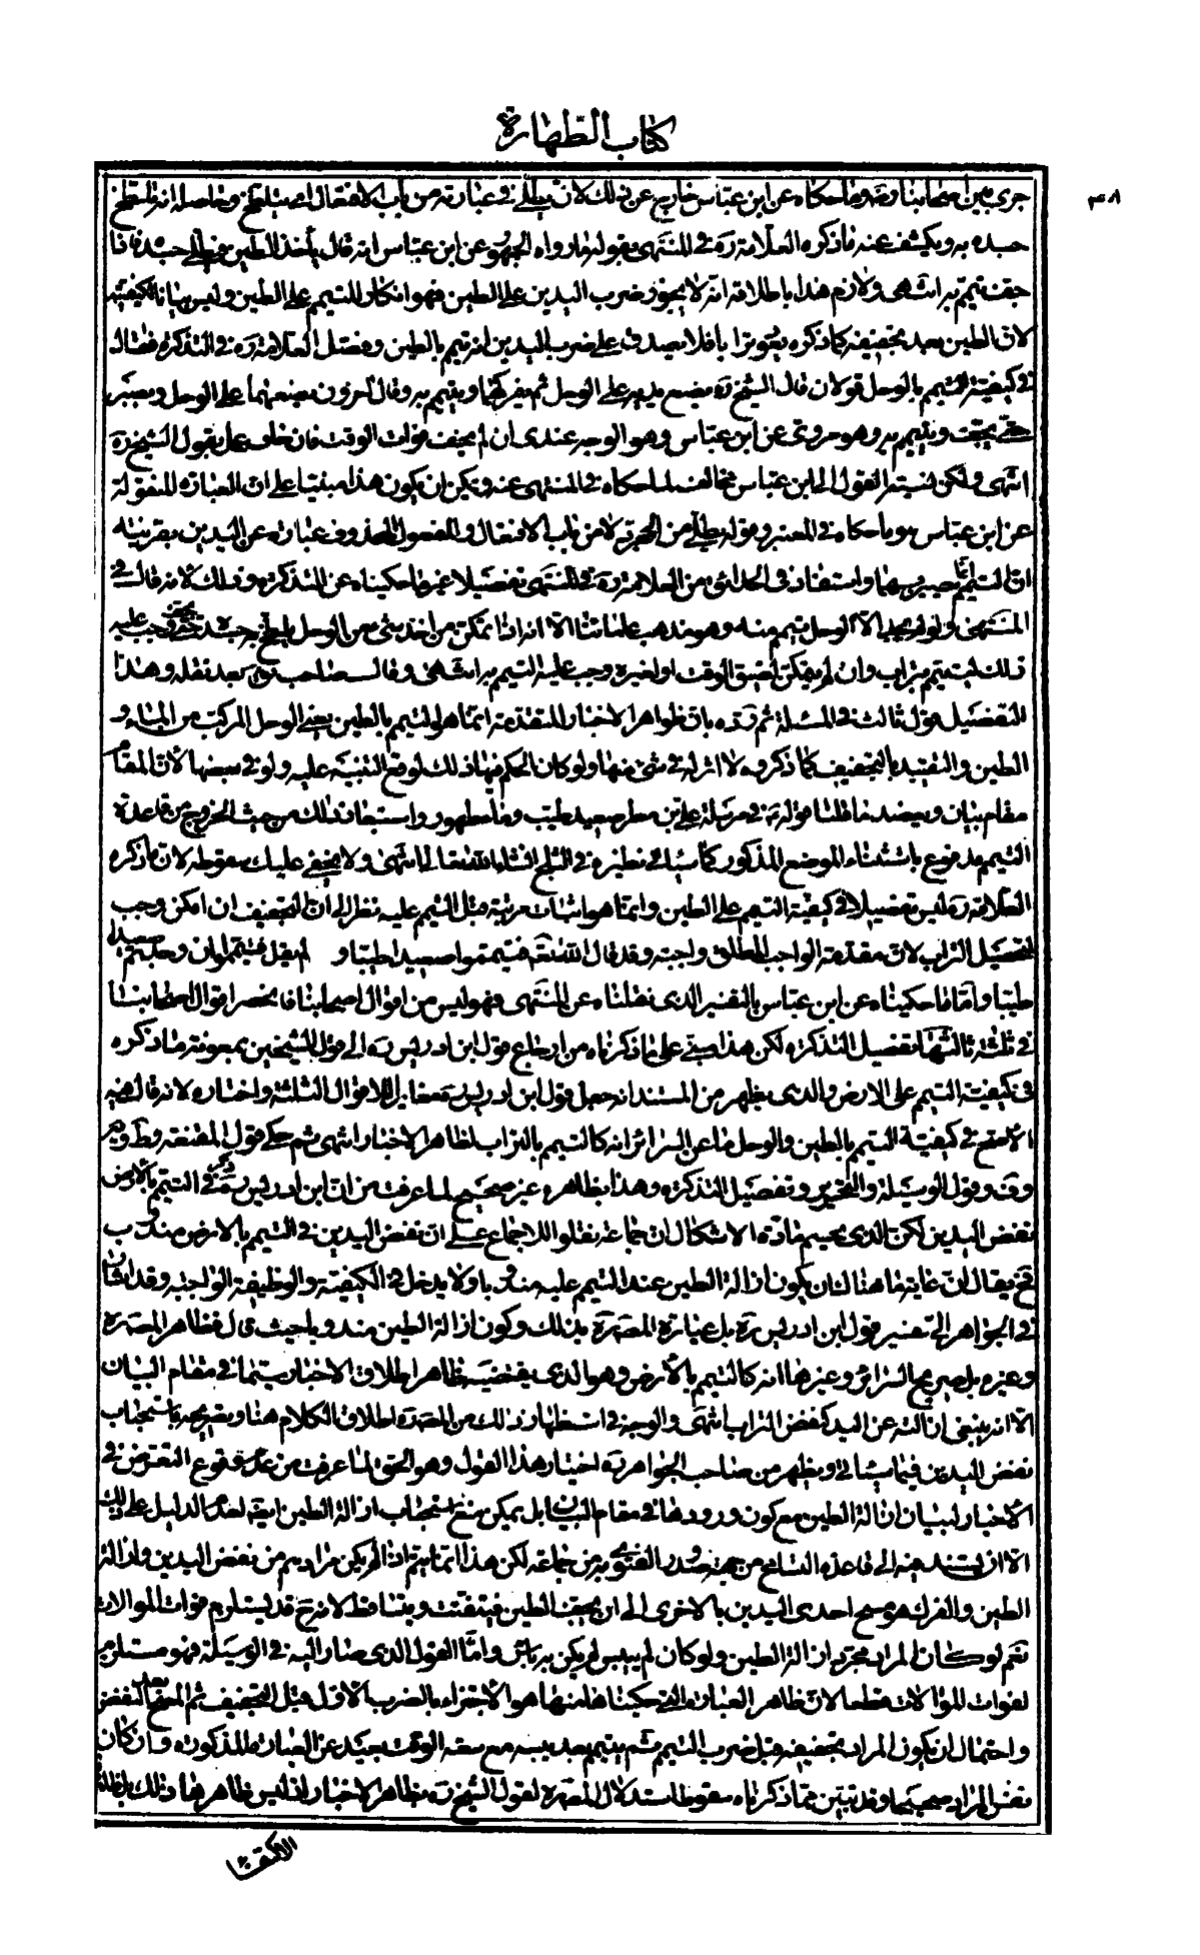 كتاب الطهارة
٣٠٨
جرى بين اصحابنا وما حكاه عن ابن عبّاس خارج عن ذلك لان يطلى في عبارته من باب الافتعال اى يتلطخ وحاصله انه يلطخ
جسده به ويكشف عنه ما ذكره العلّامة ره في المنتهى بقوله ما رواه الجمهور عن ابن عبّاس انه قال يأخذ الطين فيطلى جسده فاذا
جف تيمم به انتهى ولازم هذا باطلاقه انه لا يجوز ضرب اليدين على الطين فهو انكار للتيمم على الطين وليس بيانا لكيفيته
لان الطين بعد تجفيفه كما ذكره يصير ترابا فلا يصدق على ضرب اليدين انه تيمم بالطين وفصّل العلّامة ره في التذكرة فقال
في كيفية التيمم بالوحل قولان قال الشيخ ره يضع يديه على الوحل ثم يفركهما ويتيمم به وقال اخرون يضعهما على الوحل ويصبر
حتى يجف ويتيمم به وهو مروى عن ابن عبّاس وهو الوجه عندى ان لم يخف فوات الوقت فان خاف عمل بقول الشيخ ره
انتهى ولكن نسبته القول الى ابن عبّاس مخالف لما حكاه في المنتهى عنه ويمكن ان يكون هذا مبنيا على ان العبارة المنقولة
عن ابن عبّاس هو ما حكاه في المعتبر وقوله يطلى من المجرد لا من باب الافتعال والمفعول المحذوف عبارة عن اليدين بقرينة
ان التيمم انما يصير بهما واستفاد في الحدائق من العلامة ره في المنتهى تفصيلا غير ما حكيناه عن التذكرة وذلك لانه قال في
المنتهى ولو لم يجد الا الوحل تيمم منه وهو مذهب علمائنا الا انه اذا تمكن من اخذ شئ من الوحل يلطخ به جسده حتى يجف وجب عليه
ذلك ليتيمم بتراب وان لم يتمكن لضيق الوقت او لغيره وجب عليه التيمم به انتهى وقال صاحب ئق بعد نقله وهذا
التفصيل قول ثالث في المسئلة ثم رده بان ظواهر الاخبار المتقدمة انما هو التيمم بالطين يعنى الوحل المركب من الماء و
الطين والتقييد بالتجفيف كما ذكروه لا اثر له في شئ منها ولو كان الحكم فيها ذلك لوقع التنبيه عليه ولو في بعضها لان المقام
مقام بيان ويعضد ما قلنا قوله ع في مرسلة على بن مطر صعيد طيب وماء طهور واستبعاد ذلك من حيث الخروج عن قاعدة
التيمم مدفوع باستثناء الموضع المذكور كما سيأتى نظيره في الثلج انشاء الله تعالى انتهى ولا يخفى عليك سقوطه لان ما ذكره
العلّامة ره ليس تفصيلا في كيفية التيمم على الطين وانما هو اثبات مرتبة قبل التيمم عليه نظرا الى ان التجفيف ان امكن وجب
لتحصيل التراب لان مقدمة الواجب المطلق واجبة وقد قال الله تعالى فتيمموا صعيدا طيبا و لم يقل فتيمموا ان وجدتم صعيدا
طيبا واما ما حكيناه عن ابن عباس بالتفسير الذى نقلناه عن المنتهى فهو ليس من اقوال اصحابنا فانحصر اقوال اصحابنا
في ثلثة ثالثها تفصيل التذكرة لكن هذا مبنى على ما ذكرناه من ارجاع قول ابن ادريس ره الى قول الشيخين بمعونة ما ذكره
في كيفية التيمم على الارض والذى يظهر من المستند انه جعل قول ابن ادريس ره مقابلا للاقوال الثلثة واختاره لانه قال فيه
الاصح في كيفية التيمم بالطين والوحل ما عن السرائر انه كالتيمم بالتراب لظاهر الاخبار انتهى ثم حكى قول المقنعة وط وير
وقول الوسيلة والتحرير وتفصيل التذكرة وهذا بظاهره غير صحيح لما عرفت من ان ابن ادريس ره ذكر في التيمم بالارض
نفض اليدين لكن الذى يحسم مادة الاشكال ان جماعة نقلوا الاجماع على ان نفض اليدين في التيمم بالارض مندوب
فح يقال ان غاية ما هناك ان يكون ازالة الطين عند التيمم عليه مندوبا ولا يدخل في الكيفية والوظيفة الواجبة وقد اشار
في الجواهر الى تفسير قول ابن ادريس ره بل عبارة المصنف ره بذلك وكون ازالة الطين مندوبا حيث قال فظاهر المصنف ره
وغيره بل صريح السرائر وغيرها انه كالتيمم بالارض وهو الذى يقتضيه ظاهر اطلاق الاخبار سيّما في مقام البيان
الا انه ينبغى ازالته عن اليد كنفض التراب انتهى والوجه في استظهار ذلك من المصنف ره اطلاق الكلام هنا وتصريحه باستحباب
نفض اليدين فيما سيأتى ويظهر من صاحب الجواهر ره اختيار هذا القول وهو الحق لما عرفت من عدم وقوع التعرض في
الاخبار لبيان ازالة الطين مع كون ورودها في مقام البيان بل يمكن منع استحباب ازالة الطين ايضا لعدم الدليل على ذلك
الا ان يستند فيه الى قاعدة التسامح من جهة صدور الفتوى به من جماعة لكن هذا انما يتم اذا لم يكن مرادهم من نفض اليدين وازالة
الطين والفرك هو مسح احدى اليدين بالاخرى الى ان يجف الطين فيتفتت ويتساقط لانه ح قد يستلزم فوات الموالاة
نعم لو كان المراد مجرد ازالة الطين ولو كان لم ييبس لم يكن به باس واما القول الذى صار اليه في الوسيلة فهو مستلزم
لفوات الموالاة قطعا لان ظاهر العبارة التي حكيناها منها هو الاجتزاء بالضرب الاول قبل التجفيف ثم المسح بعد النفض
واحتمال ان يكون المراد تجفيفه قبل ضرب التيمم ثم يتيمم بعد يبسه مع سعة الوقت بعيد عن العبارة المذكورة وان كان
نفس المراد صحيحا وقد تبين مما ذكرناه سقوط استدلال المصنف ره لقول الشيخ ره بظاهر الاخبار اذ ليس ظاهرها ذلك بل ظاهرها
الاكتفا